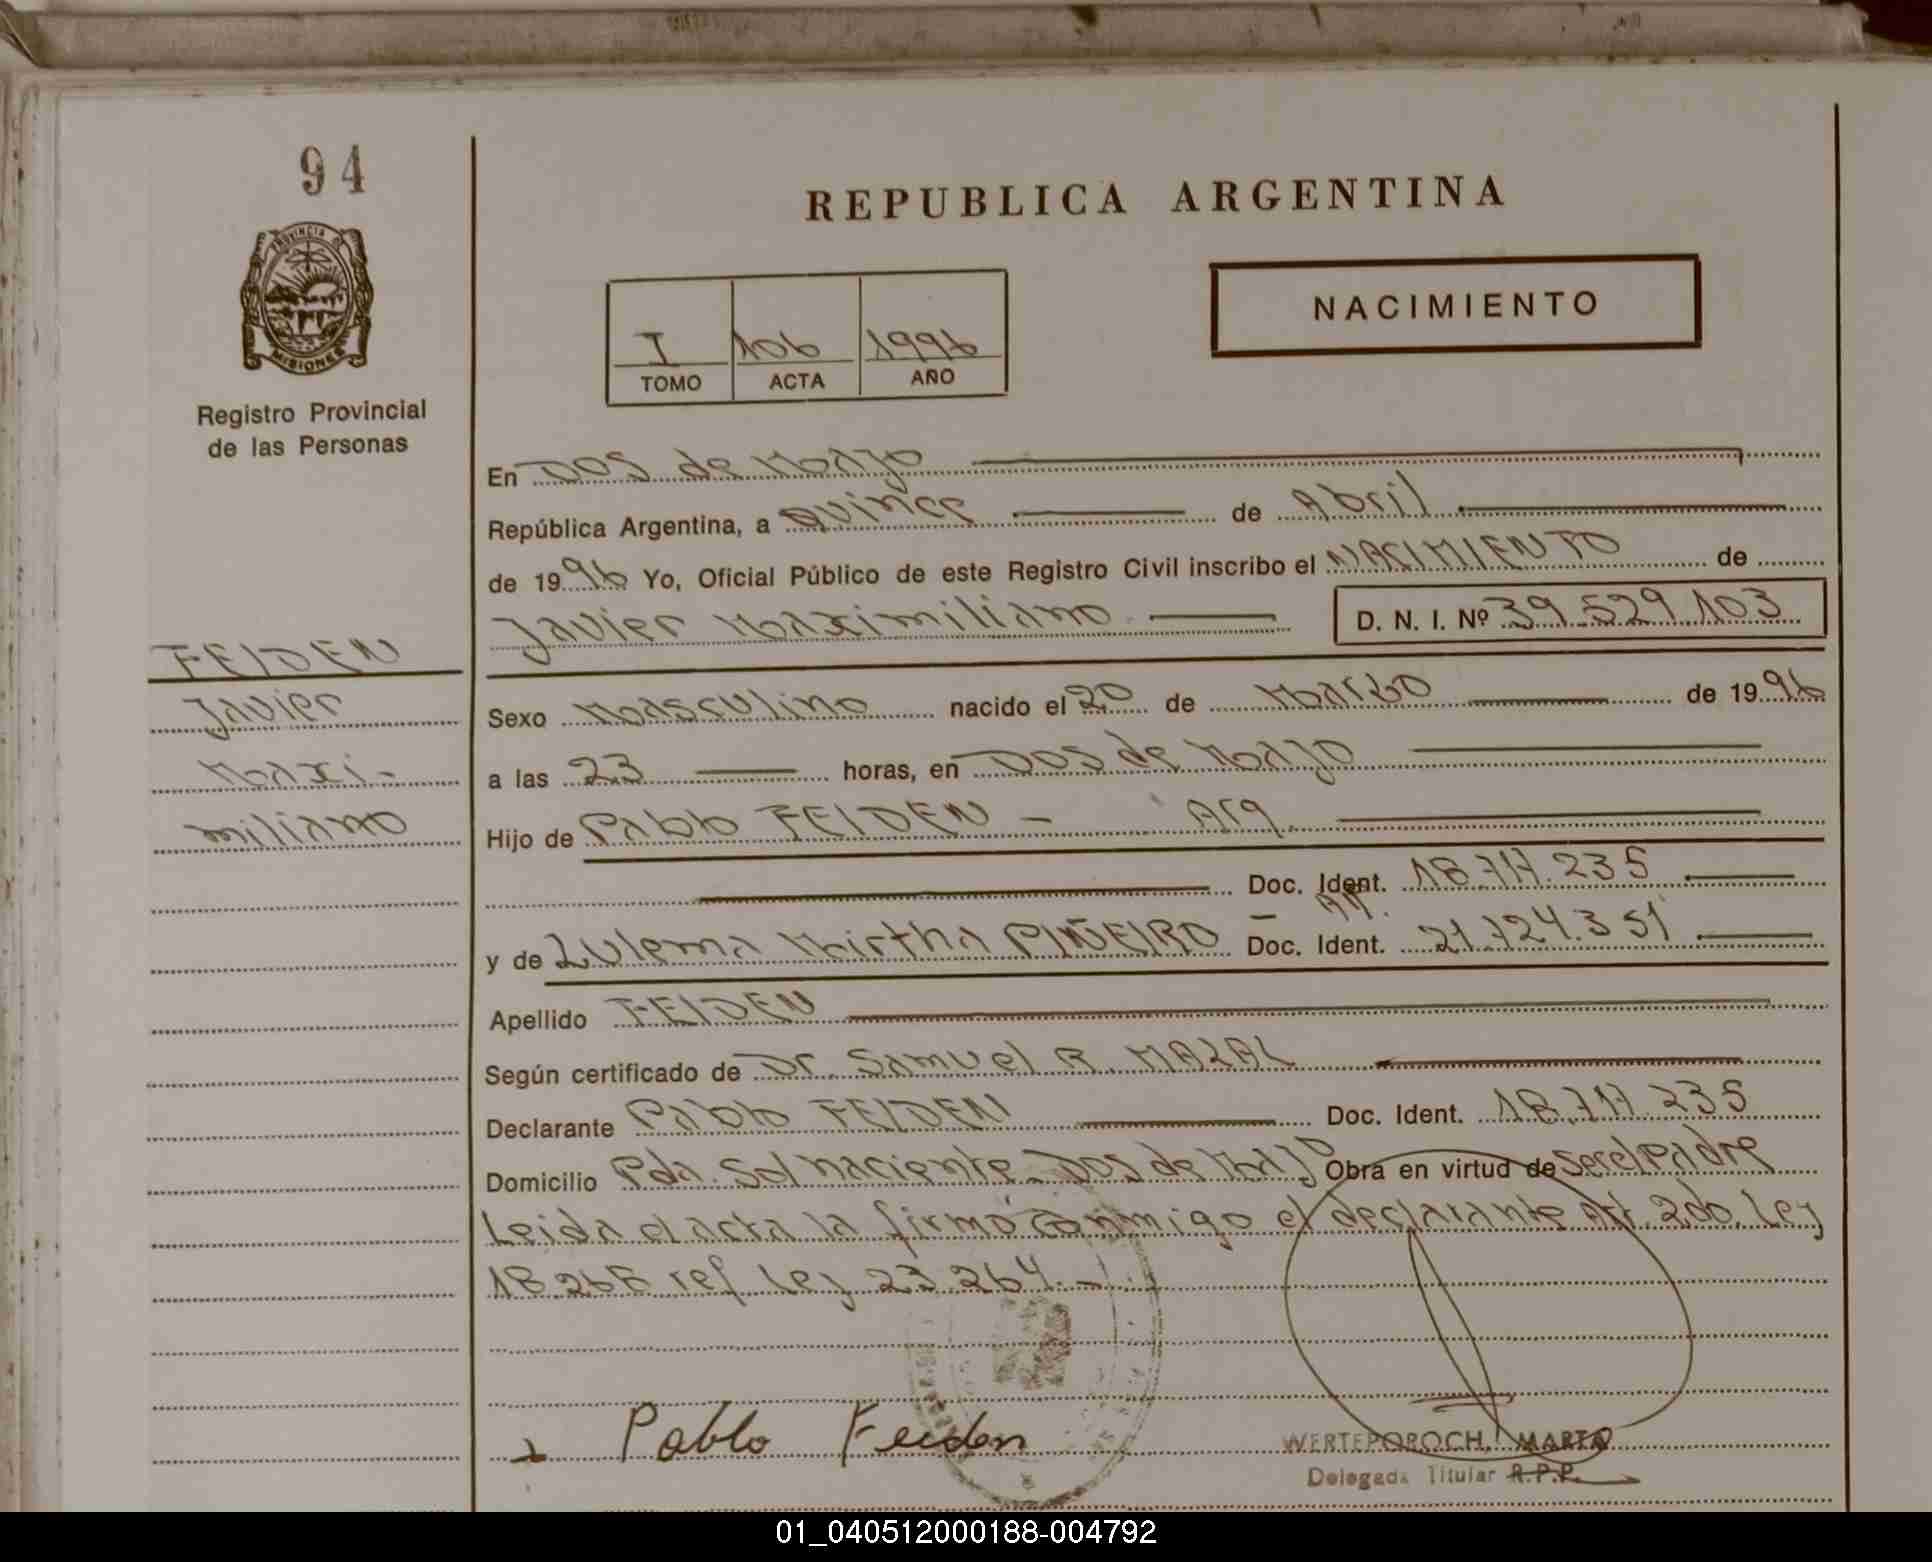 94
PROVINCIA DE
MISIONES
Registro Provincial
de las Personas
REPUBLICA ARGENTINA
NACIMIENTO
I 106 1996
TOMO ACTA AÑO
En Dos de Mayo
República Argentina, a Quince de Abril
de 1996 Yo, Oficial Público de este Registro Civil inscribo el NACIMIENTO de
Javier Maximiliano D. N. I. Nº 39.529.103
FEIDEN
Javier
Maxi-
miliano
Sexo Masculino nacido el 20 de Marzo de 1996
a las 23 horas, en Dos de Mayo
Hijo de Pablo FEIDEN - Arg.
Doc. Ident. 18.717.235
y de Zulema Mirtha PIÑEIRO - Doc. Ident. 21.724.351
Apellido FEIDEN
Según certificado de Dr. Samuel R. MAZAL
Declarante Pablo FEIDEN Doc. Ident. 18.717.235
Domicilio Pda. Sol naciente Dos de Mayo Obra en virtud de ser el Padre
Leida el acta la firmó conmigo el declarante Art. 2do. Ley
18.268 ref. ley 23.264.-
Pablo Feiden
WERTEPOROCH, MARTA
Delegada Titular R.P.P.
01_040512000188-004792